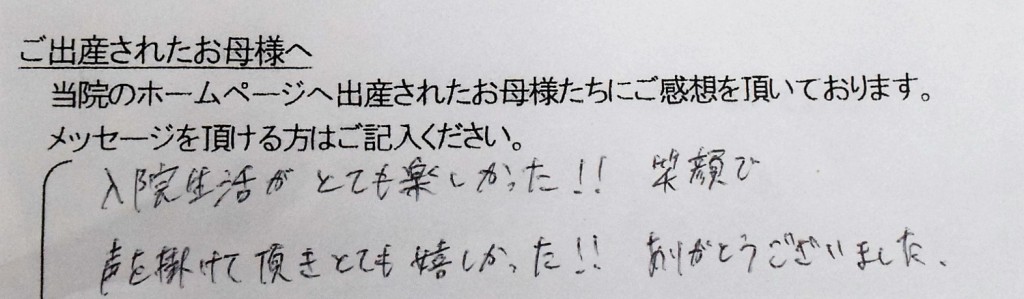 ご出産されたお母様へ
当院のホームページへ出産されたお母様たちにご感想を頂いております。
メッセージを頂ける方はご記入ください。
入院生活が とても楽しかった!! 笑顔で
声を掛けて頂きとても嬉しかった!! ありがとうございました、